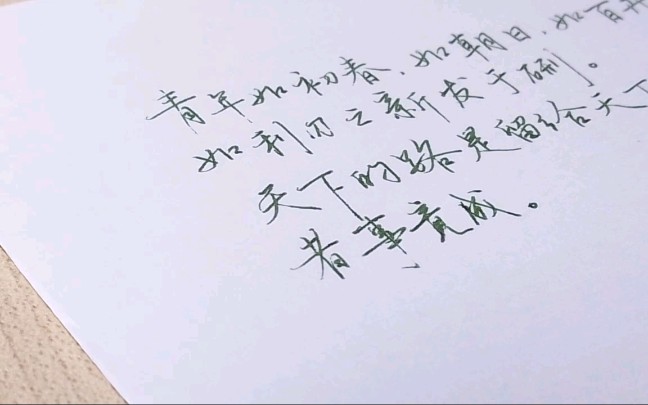 青年如初春，如朝日，如百卉
如利刃之新发于硎。
天下的路是留给天下
者事竟成。